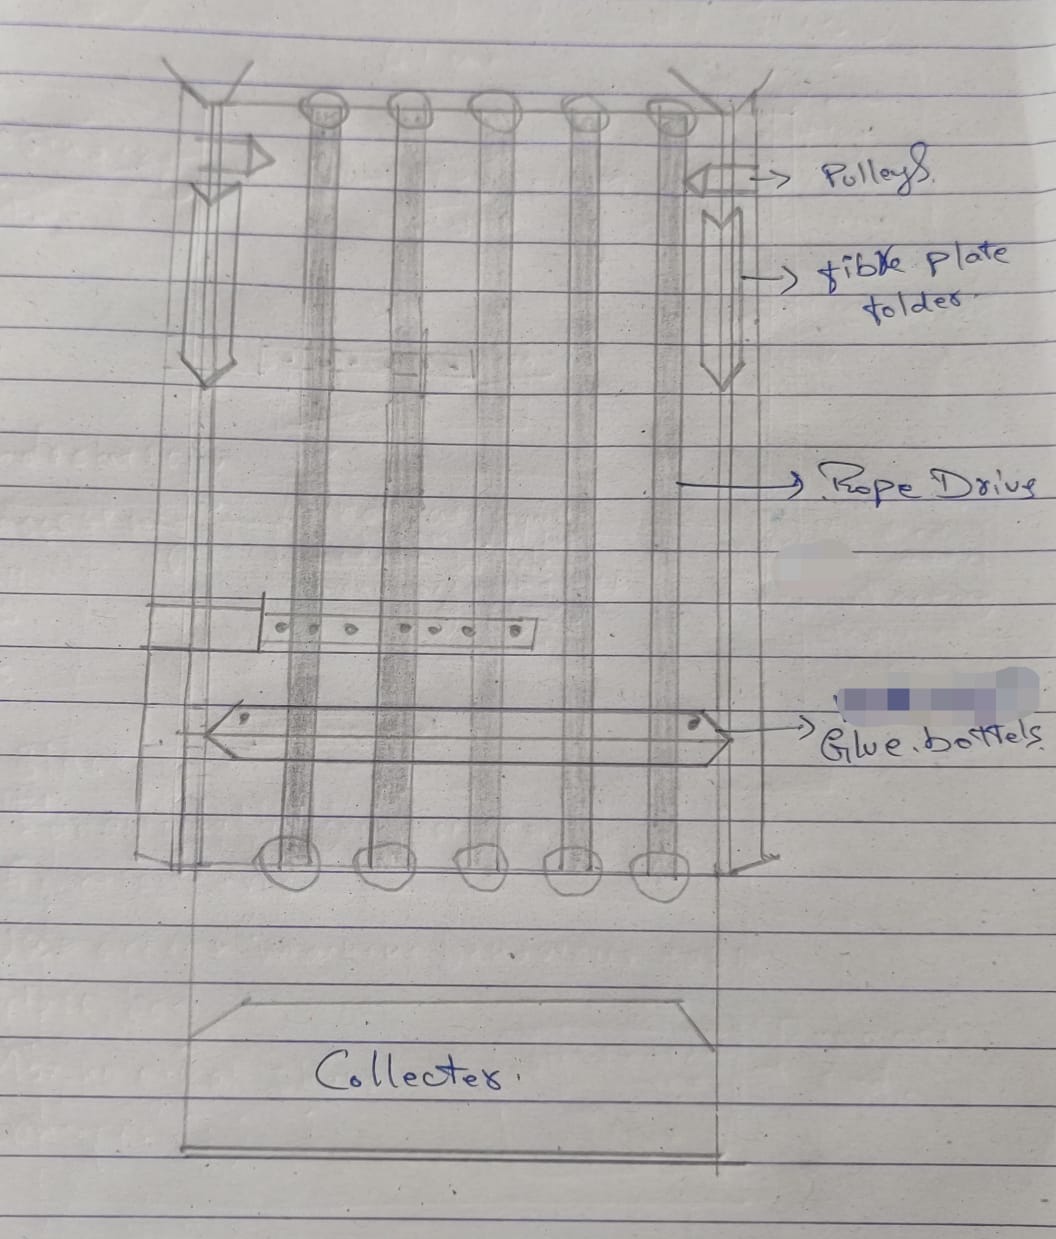 Pulleys.
fible plate
folder
Rope Drive
Glue. bottels.
Collecter.